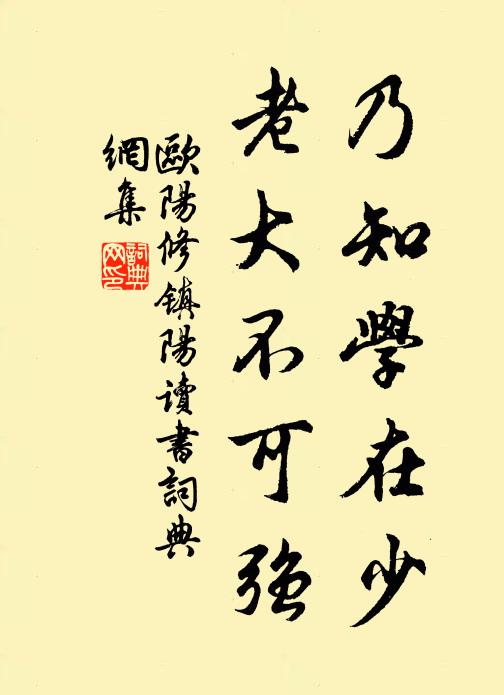 乃知學在少
老大不可強
歐陽修鎮陽讀書詞典
網集
詞典
网印